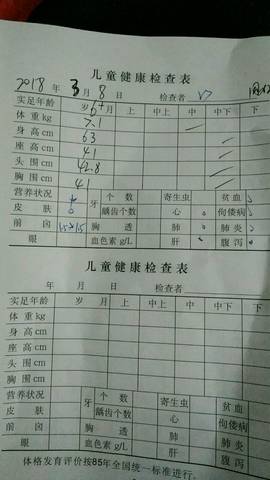 儿童健康检查表
2018 年 3 月 8 日 检查者
实足年龄 岁 6+月 上 中上 中 中下 下
体重kg 7.1 —
身高cm 63 —
座高cm 41 —
头围cm 42.8 —
胸围cm 41 —
营养状况 牙 个数 寄生虫 贫血
皮肤 龋齿个数 心 佝偻病
前囟 1.5×1.5 胸透 肺 肺炎
眼 血色素g/L 肝 腹泻
儿童健康检查表
年 月 日 检查者
实足年龄 岁 月 上 中上 中 中下 下
体重kg
身高cm
座高cm
头围cm
胸围cm
营养状况 牙 个数 寄生虫 贫血
皮肤 龋齿个数 心 佝偻病
前囟 胸透 肺 肺炎
眼 血色素g/L 肝 腹泻
体格发育评价按85年全国统一标准进行。